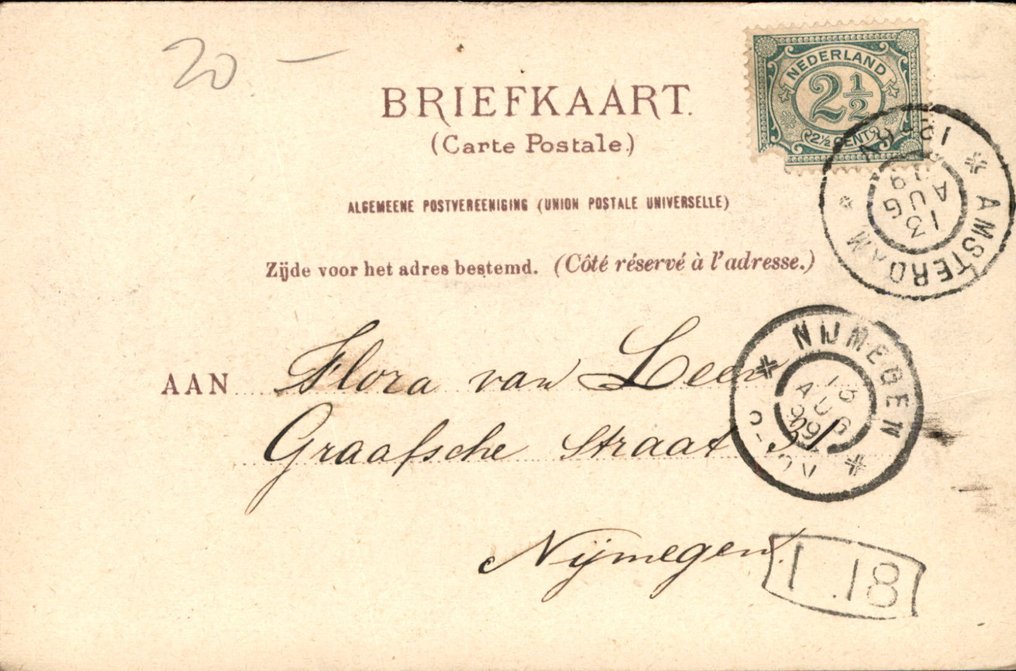 20 –
NEDERLAND
2½
2½ CENT
BRIEFKAART.
(Carte Postale.)
ALGEMEENE POSTVEREENIGING (UNION POSTALE UNIVERSELLE)
Zijde voor het adres bestemd. (Côté réservé à l'adresse.)
AMSTERDAM
13 AUG
AAN Flora van Leen
Graafsche straat
Nijmegen
NIJMEGEN
13
AUG
99
1 18